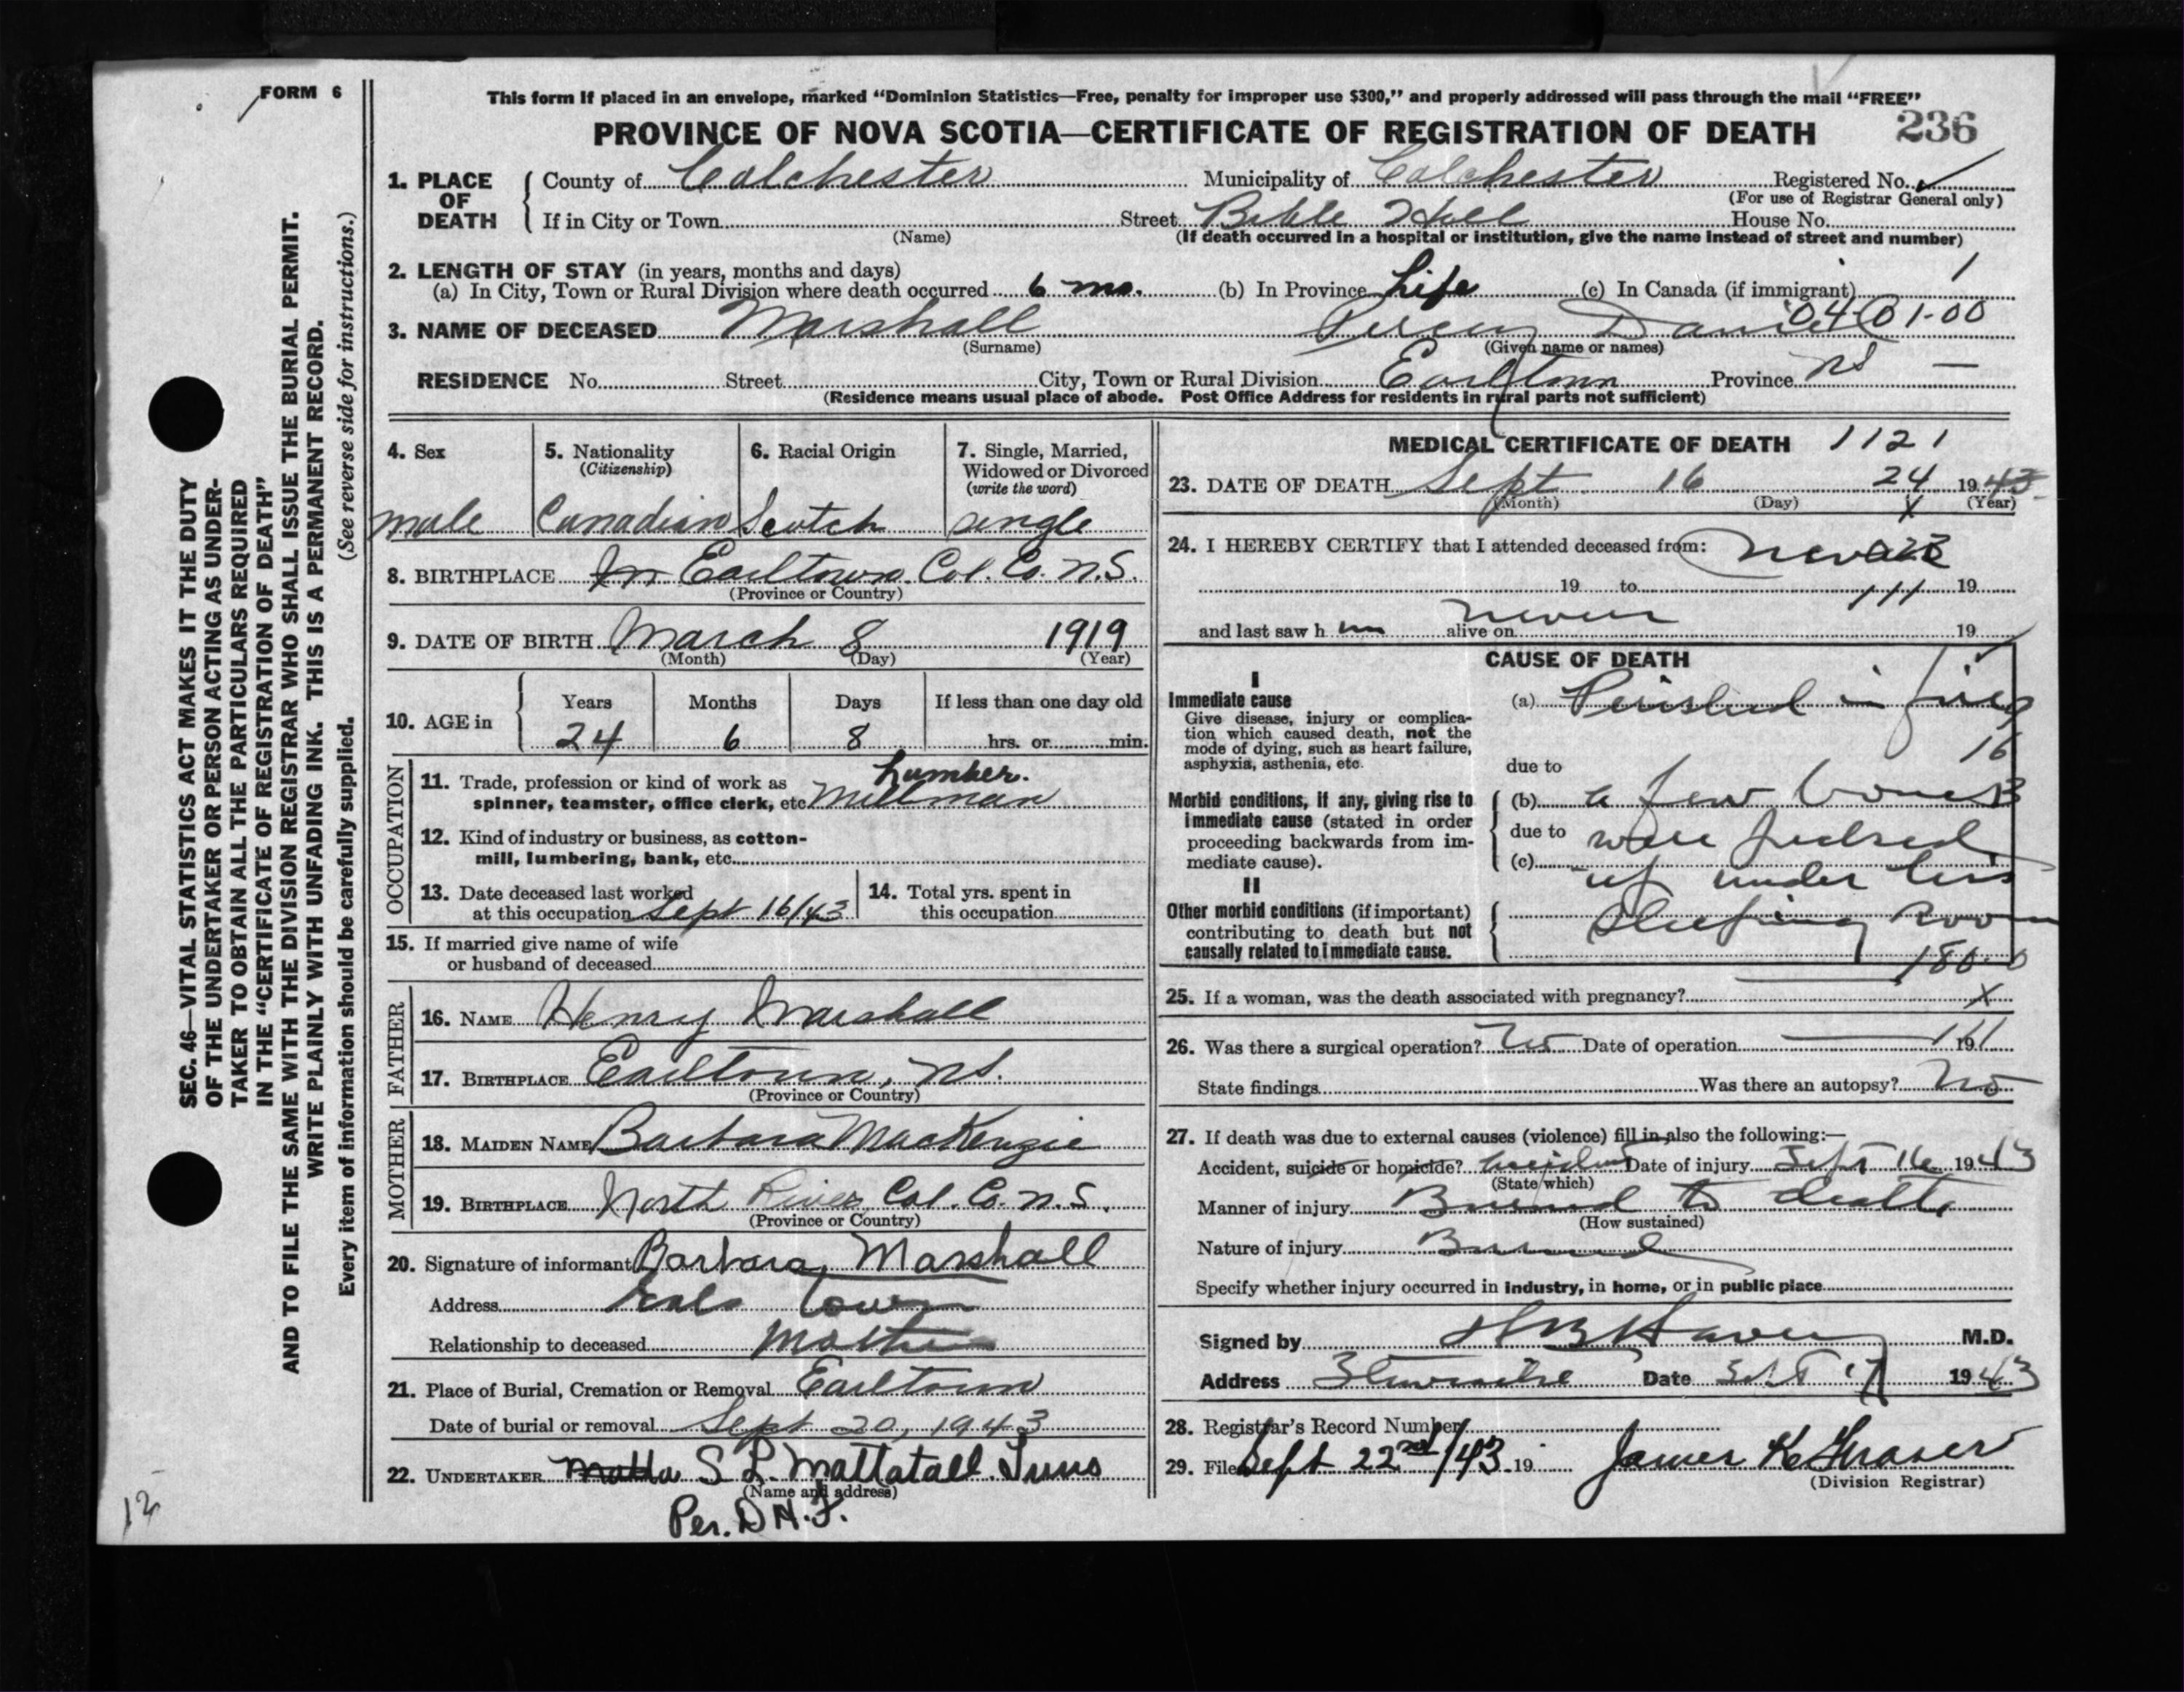 FORM 6
This form if placed in an envelope, marked “Dominion Statistics—Free, penalty for improper use $300,” and properly addressed will pass through the mail “FREE”
PROVINCE OF NOVA SCOTIA—CERTIFICATE OF REGISTRATION OF DEATH 236
1. PLACE OF DEATH
County of Colchester Municipality of Colchester Registered No.
(For use of Registrar General only)
If in City or Town Street Bible Hill House No.
(Name) (If death occurred in a hospital or institution, give the name instead of street and number)
2. LENGTH OF STAY (in years, months and days)
(a) In City, Town or Rural Division where death occurred 6 mo. (b) In Province Life (c) In Canada (if immigrant) 1
04-01-00
3. NAME OF DECEASED Marshall Percy Daniel
(Surname) (Given name or names)
RESIDENCE No. Street City, Town or Rural Division Earltown Province NS —
(Residence means usual place of abode. Post Office Address for residents in rural parts not sufficient)
4. Sex
male
5. Nationality
(Citizenship)
Canadian
6. Racial Origin
Scotch
7. Single, Married,
Widowed or Divorced
(write the word)
single
8. BIRTHPLACE In Earltown. Col. Co. N.S.
(Province or Country)
9. DATE OF BIRTH March 8 1919
(Month) (Day) (Year)
10. AGE in
Years Months Days If less than one day old
24 6 8 hrs. or min.
OCCUPATION
11. Trade, profession or kind of work as
spinner, teamster, office clerk, etc. Lumber. Millman
12. Kind of industry or business, as cotton-
mill, lumbering, bank, etc.
13. Date deceased last worked
at this occupation Sept 16/43
14. Total yrs. spent in
this occupation
15. If married give name of wife
or husband of deceased
FATHER
16. NAME Henry Marshall
17. BIRTHPLACE Earltown, NS.
(Province or Country)
MOTHER
18. MAIDEN NAME Barbara MacKenzie
19. BIRTHPLACE North River Col. Co. N.S.
(Province or Country)
20. Signature of informant Barbara Marshall
Address Earl town
Relationship to deceased Mother
21. Place of Burial, Cremation or Removal Earltown
Date of burial or removal Sept 20, 1943
22. UNDERTAKER S L. Mattatall
(Name and address)
Per. D H. F.
MEDICAL CERTIFICATE OF DEATH 1121
23. DATE OF DEATH Sept 16 24 1943
(Month) (Day) X (Year)
24. I HEREBY CERTIFY that I attended deceased from: never
19 to 111 19
and last saw h im alive on never 19
CAUSE OF DEATH
I
Immediate cause
Give disease, injury or complica-
tion which caused death, not the
mode of dying, such as heart failure,
asphyxia, asthenia, etc.
(a) Perished in fire
16
due to
Morbid conditions, if any, giving rise to
immediate cause (stated in order
proceeding backwards from im-
mediate cause).
(b) a few bones
due to were picked
(c) up under his
II
Other morbid conditions (if important)
contributing to death but not
causally related to immediate cause.
sleeping room
180-0
25. If a woman, was the death associated with pregnancy? X
26. Was there a surgical operation? No Date of operation 19
State findings Was there an autopsy? No
27. If death was due to external causes (violence) fill in also the following:—
Accident, suicide or homicide? Accident Date of injury Sept 16 1943
(State which)
Manner of injury Burned to death
(How sustained)
Nature of injury Burned
Specify whether injury occurred in industry, in home, or in public place
Signed by M.D.
Address Date Sept 17 1943
28. Registrar's Record Number
29. Filed Sept 22nd/43 19 James K Fraser
(Division Registrar)
SEC. 46—VITAL STATISTICS ACT MAKES IT THE DUTY
OF THE UNDERTAKER OR PERSON ACTING AS UNDER-
TAKER TO OBTAIN ALL THE PARTICULARS REQUIRED
IN THE “CERTIFICATE OF REGISTRATION OF DEATH”
AND TO FILE THE SAME WITH THE DIVISION REGISTRAR WHO SHALL ISSUE THE BURIAL PERMIT.
WRITE PLAINLY WITH UNFADING INK. THIS IS A PERMANENT RECORD.
Every item of information should be carefully supplied. (See reverse side for instructions.)
12